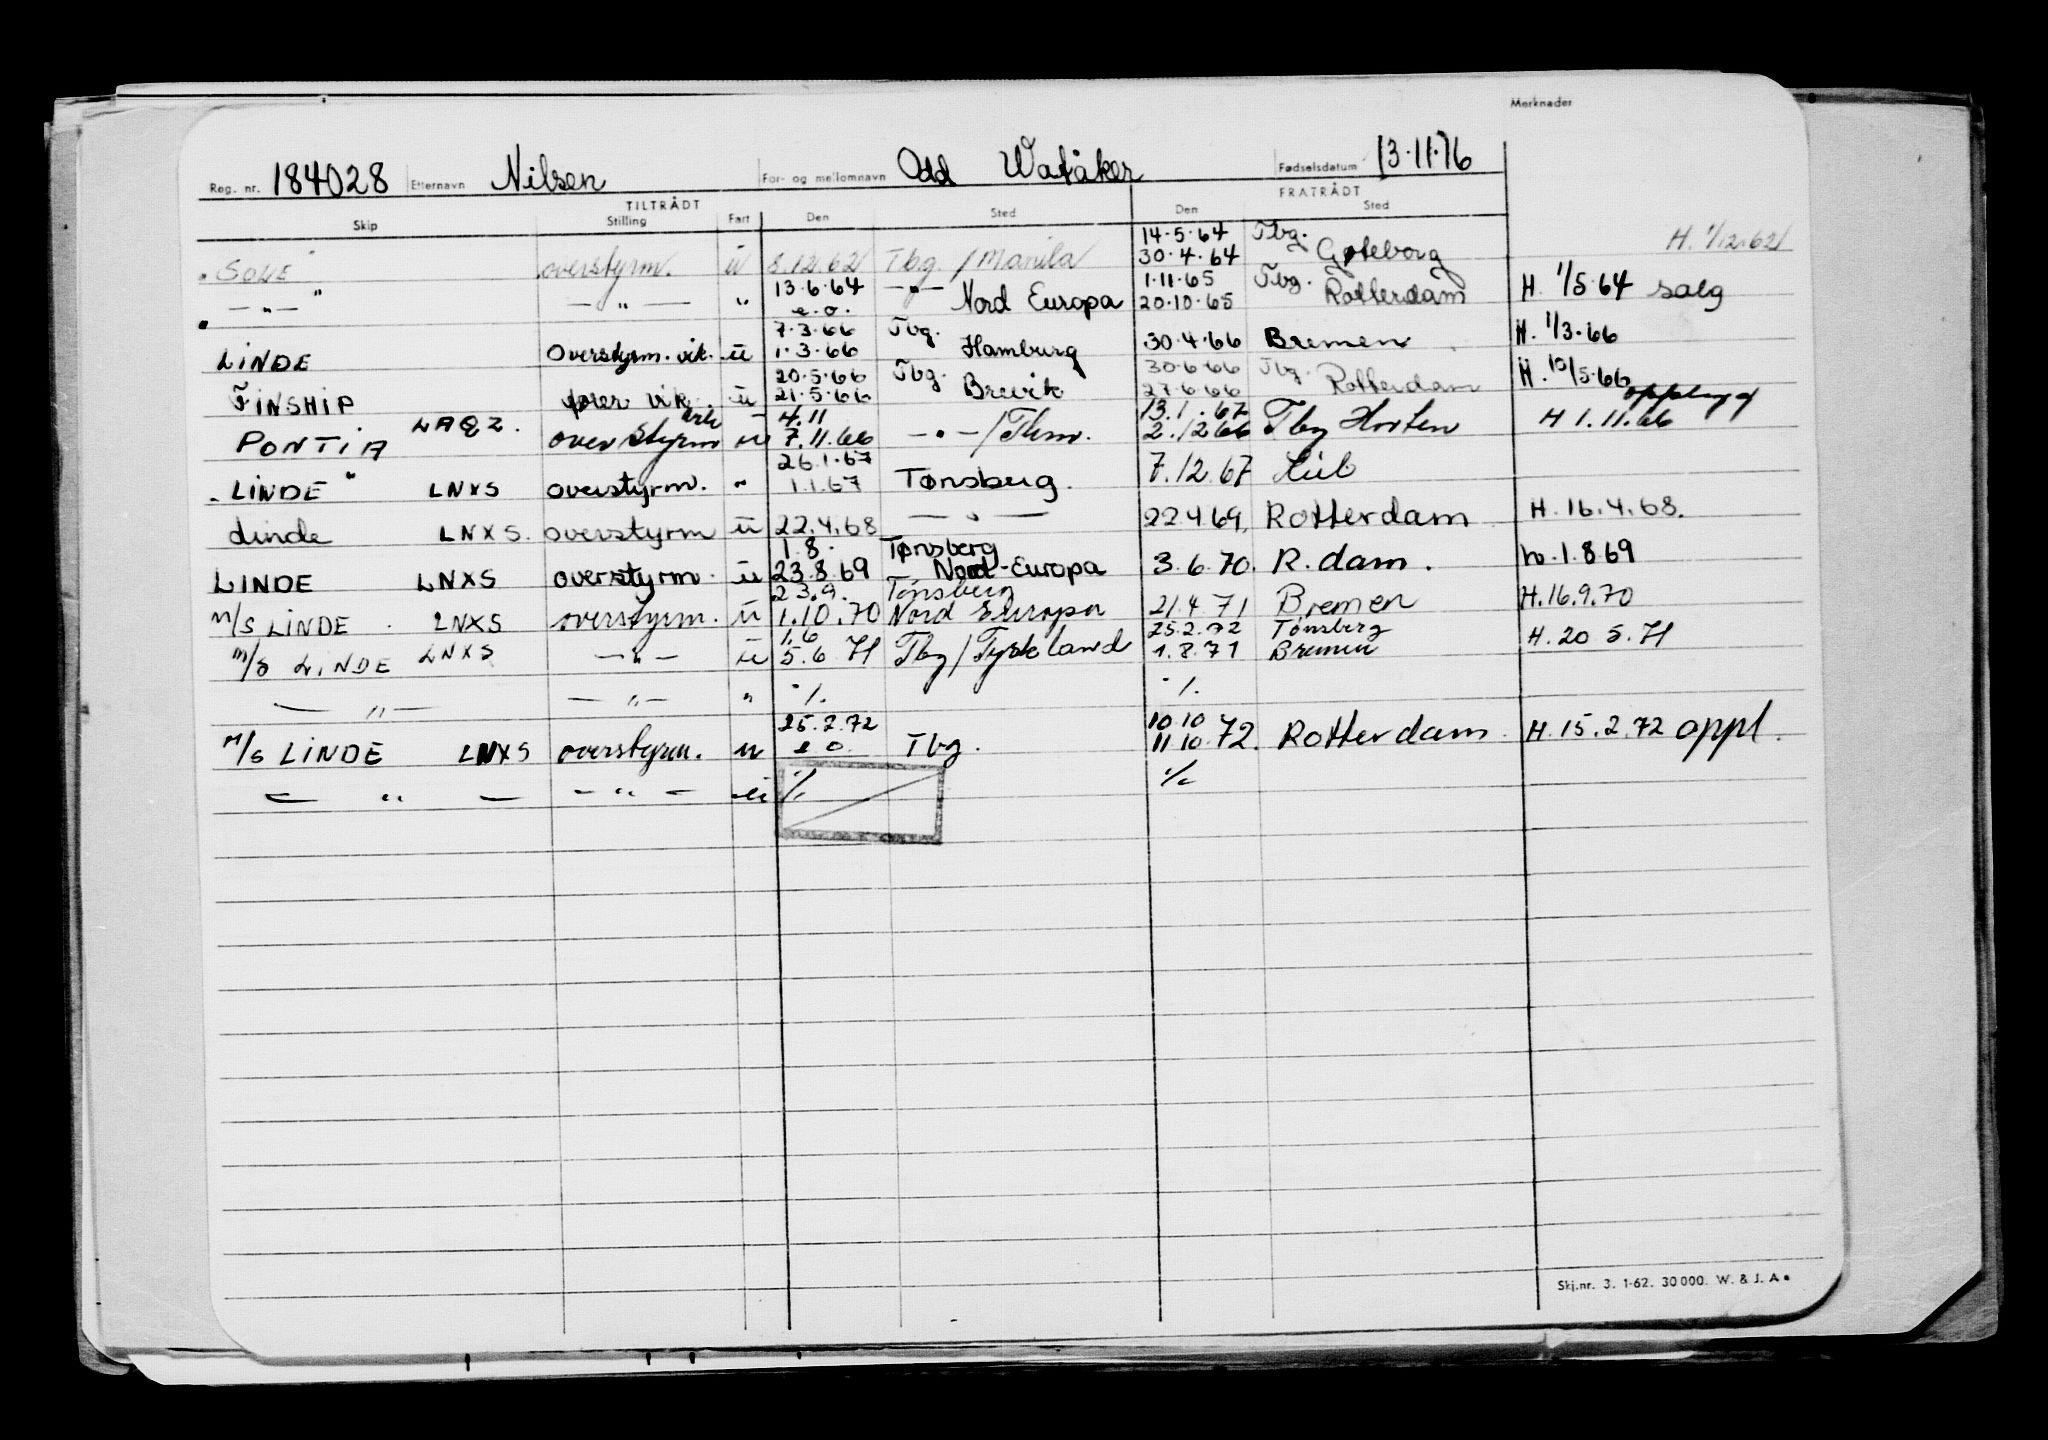 Merknader
Reg. nr. 184028 Etternavn Nilsen For- og mellomnavn Odd Watåker Fødselsdatum 13.11.16
TILTRÅDT FRATRÅDT
Skip Stilling Fart Den Sted Den Sted
14.5.64 Tbg. H. 1/12.62
overstyrm. ū 8.12.62 Tbg. / Manila 30.4.64 Gøteborg
13.6.64 — " — 1.11.65 Tbg.
— " — — " — " e.o. Nord Europa 20.10.65 Rotterdam H. 1/5.64 salg
7.3.66 Tbg.
LINDE Overstyrm. vik. ū 1.3.66 Hamburg 30.4.66 Bremen H. 1/3.66
20.5.66 Tbg. 30.6.66 Tbg.
FINSHIP vik. ū 21.5.66 Brevik 27.6.66 Rotterdam H. 10/5.66 oppbygd
4.11 13.1.67
PONTIA LAQZ. overstyrm ū 7.11.66 — " — / Thm. 2.12 66 Tbg Horten H 1.11.66
26.1.67
"LINDE" LNXS overstyrm. " 1.1.67 Tønsberg. 7.12.67 Kiel
Linde LNXS. overstyrm ū 22.4.68 — " — 22.4.69. Rotterdam H. 16.4.68.
1.8. Tønsberg
LINDE LNXS overstyrm. ū 23.8.69 Nord-Europa 3.6.70. R.dam. h.1.8.69
23.9. Tønsberg
M/S LINDE LNXS overstyrm. ū 1.10.70 Nord Europa 21.4.71 Bremen H.16.9.70
1.6 25.2.72 Tønsberg
M/S LINDE LNXS — " — ū 5.6 71 Tbg / Tyskland 1.8.71 Bremen H. 20 5.71
— " — — " — " ·/. ·/.
25.2.72 10.10
M/S LINDE LNXS overstyrm. u e o. Tbg. 11 10.72. Rotterdam. H. 15.2.72 oppl.
— " — — " — ū ·/. ·/.
Skj.nr. 3. 1-62. 30 000. W. & J. A.